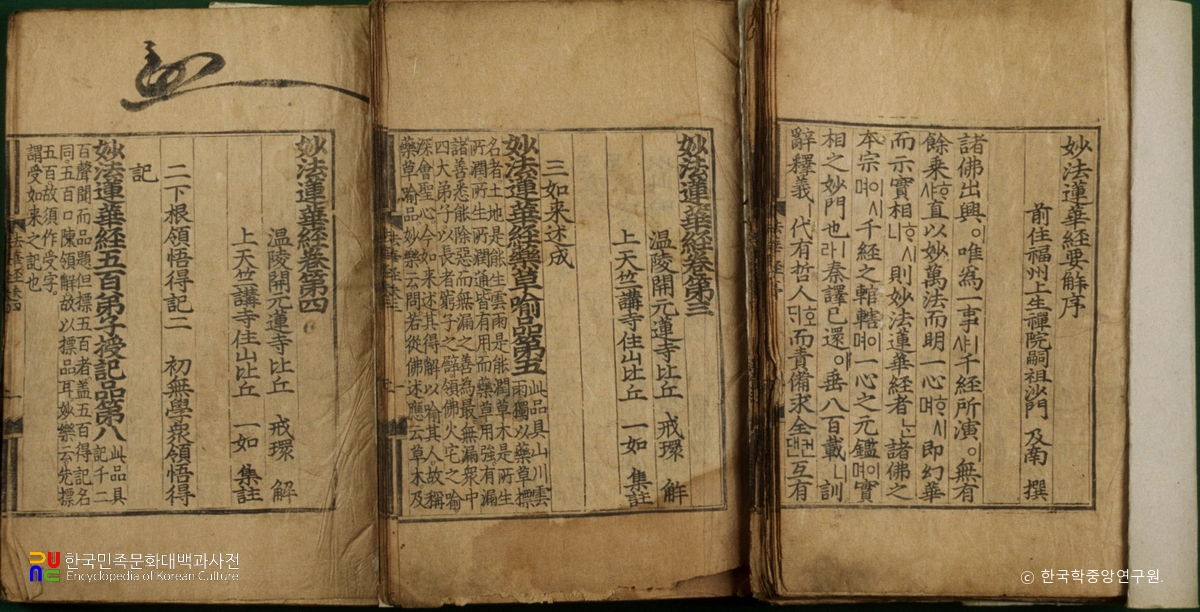 妙法蓮華經要解序
前住福州上生禪院嗣祖沙門 及南 撰
諸佛出興이。唯爲一事시샤千經所演이。無有
餘乘호샤直以妙萬法而明一心호시며即幻華
而示實相호시니則妙法蓮華經者는諸佛之
本宗이시며千經之輨轄이며一心之元鑑이며實
相之妙門也ㅣ라秦譯已還애。垂八百載니訓
辭釋義 代有哲人호ᄃᆡ而責備求全컨댄互有
妙法蓮華經卷第三
溫陵開元蓮寺比丘 戒環 解
上天竺講寺住山比丘 一如 集註
三如來述成
妙法蓮華經藥草喻品第五 此品具山川雲
雨獨以藥草標
名者土地是能生雲雨是能潤草木是所生
所潤所生所潤通皆有用而藥草用強有漏
諸善悉能除惡而無漏之善為最無漏衆中
四大弟子以長者窮子之譬領佛火宅之喻
深會聖心今如来述其得解以喻其人故稱
藥草喻品妙樂云問若從佛述應云草木及
妙法蓮華經卷第四
溫陵開元蓮寺比丘 戒環 解
上天竺講寺住山比丘 一如 集註
二下根領悟得記二 初無學衆領悟得
記
妙法蓮華經五百弟子授記品第八 此品具
記千二
百聲聞而品題但標五百者盖五百得記名
同五百口陳領解故以標品耳妙樂云先標
五百故須作受字。
謂受如来之記也
한국민족문화대백과사전
Encyclopedia of Korean Culture
© 한국학중앙연구원.